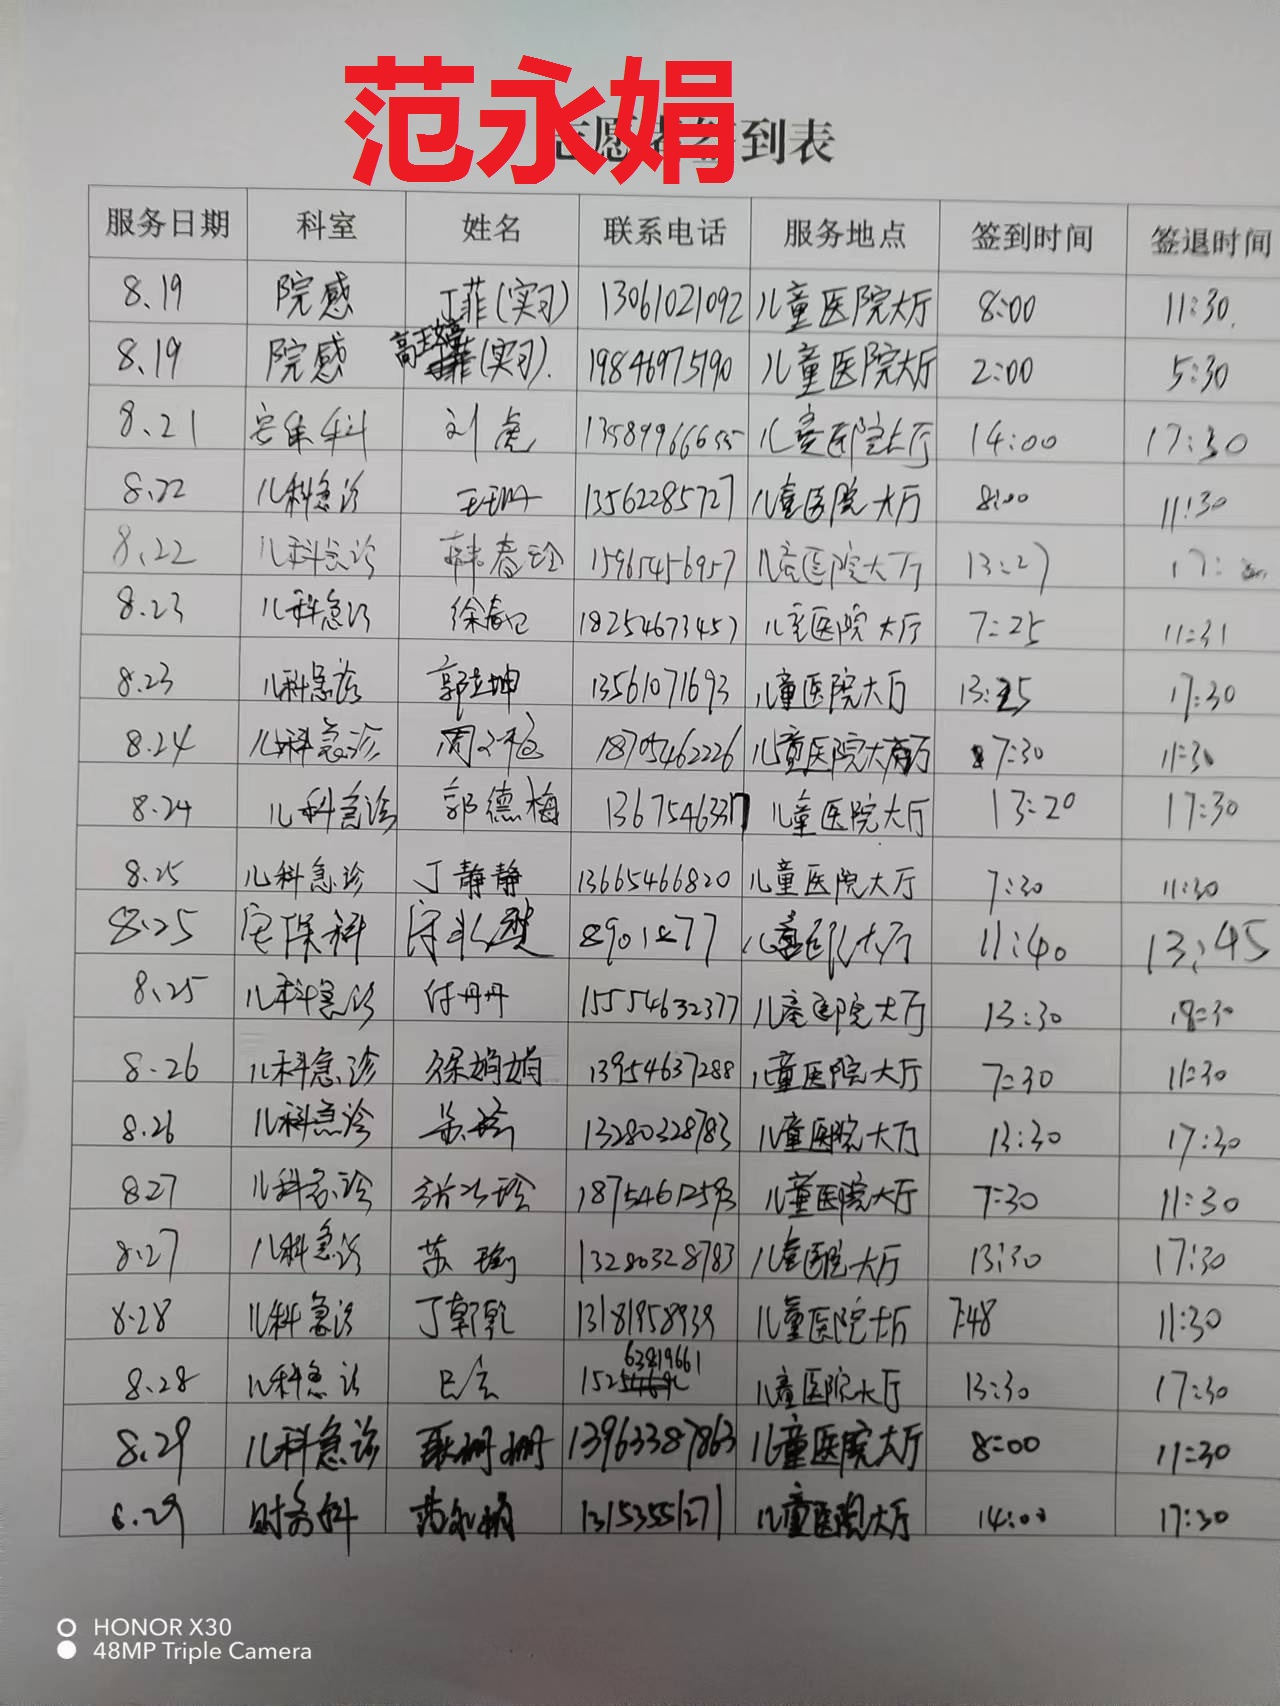 范永娟
志愿者签到表
服务日期 科室 姓名 联系电话 服务地点 签到时间 签退时间
8.19 院感 丁菲(实习) 13061021092 儿童医院大厅 8:00 11:30.
8.19 院感 高玉婷(实习). 19846975190 儿童医院大厅 2:00 5:30
8.21 安保科 刘虎 13589966655 儿童医院大厅 14:00 17:30
8.22 儿科急诊 王珊 13562285727 儿童医院大厅 8:00 11:30
8.22 儿科急诊 韩春玲 15965456957 儿童医院大厅 13:27 17:
8.23 儿科急诊 徐 18254673457 儿童医院大厅 7:25 11:31
8.23 儿科急诊 郭立坤 13561071693 儿童医院大厅 13:25 17:30
8.24 儿科急诊 周 18705462226 儿童医院大厅 7:30 11:30
8.24 儿科急诊 郭德梅 13675463317 儿童医院大厅 13:20 17:30
8.25 儿科急诊 丁静静 13665466820 儿童医院大厅 7:30 11:30
8.25 安保科 8901877 儿童医院大厅 11:40 13:45
8.25 儿科急诊 付丹丹 15554632377 儿童医院大厅 13:30 18:30
8.26 儿科急诊 徐娟娟 13954637288 儿童医院大厅 7:30 11:30
8.26 儿科急诊 13280328783 儿童医院大厅 13:30 17:30
8.27 儿科急诊 18754612593 儿童医院大厅 7:30 11:30
8.27 儿科急诊 苏瑜 13280328783 儿童医院大厅 13:30 17:30
8.28 儿科急诊 丁乾乾 13181958939 儿童医院大厅 7:48 11:30
63819661
8.28 儿科急诊 152 儿童医院大厅 13:30 17:30
8.29 儿科急诊 耿珊珊 13963387863 儿童医院大厅 8:00 11:30
8.29 财务科 范永娟 13153551271 儿童医院大厅 14:00 17:30
HONOR X30
48MP Triple Camera